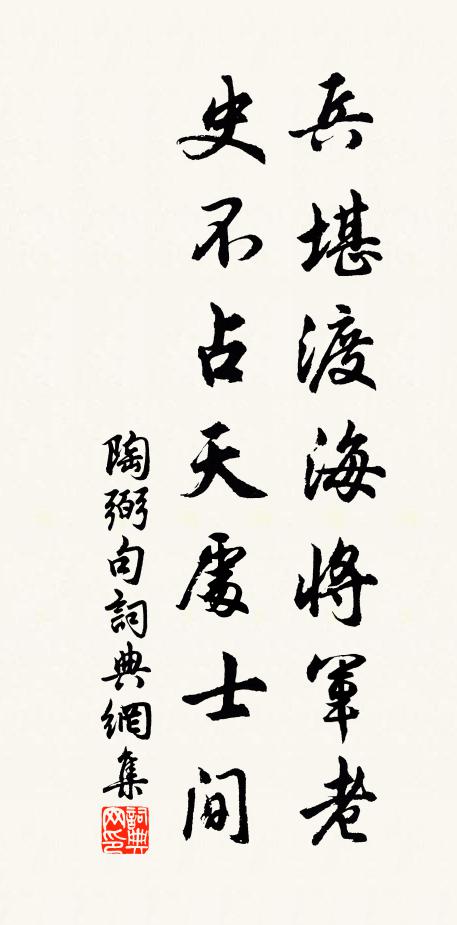 兵堪渡海將軍老
史不占天處士間
陶弼句詞典網集
詞典网印